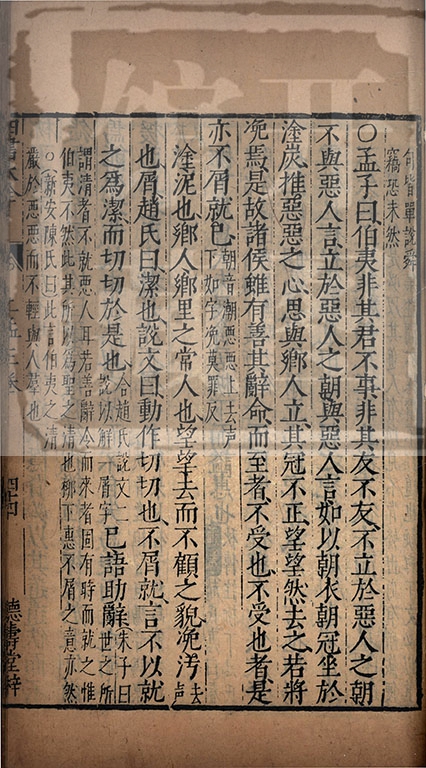 句皆單說舜
竊恐未然
○孟子曰伯夷非其君不事非其友不友不立於惡人之朝
不與惡人言立於惡人之朝與惡人言如以朝衣朝冠坐於
塗炭推惡惡之心思與鄉人立其冠不正望望然去之若將
浼焉是故諸侯雖有善其辭命而至者不受也不受也者是
亦不屑就已朝音潮惡惡上去聲
下如字浼莫罪反
塗泥也鄉人鄉里之常人也望望去而不顧之貌浼汚去聲
也屑趙氏曰潔也說文曰動作切切也不屑就言不以就
之爲潔而切切於是也合趙氏說文二
說以解屑字已語助辭朱子曰
世之所
謂清者不就惡人耳若善辭令而來者固有時而就之惟
伯夷不然此其所以爲聖之清也柳下惠不屑之意亦然
○新安陳氏曰此言伯夷之清
嚴於惡惡而不輕與人羣也
四十四
德壽堂梓